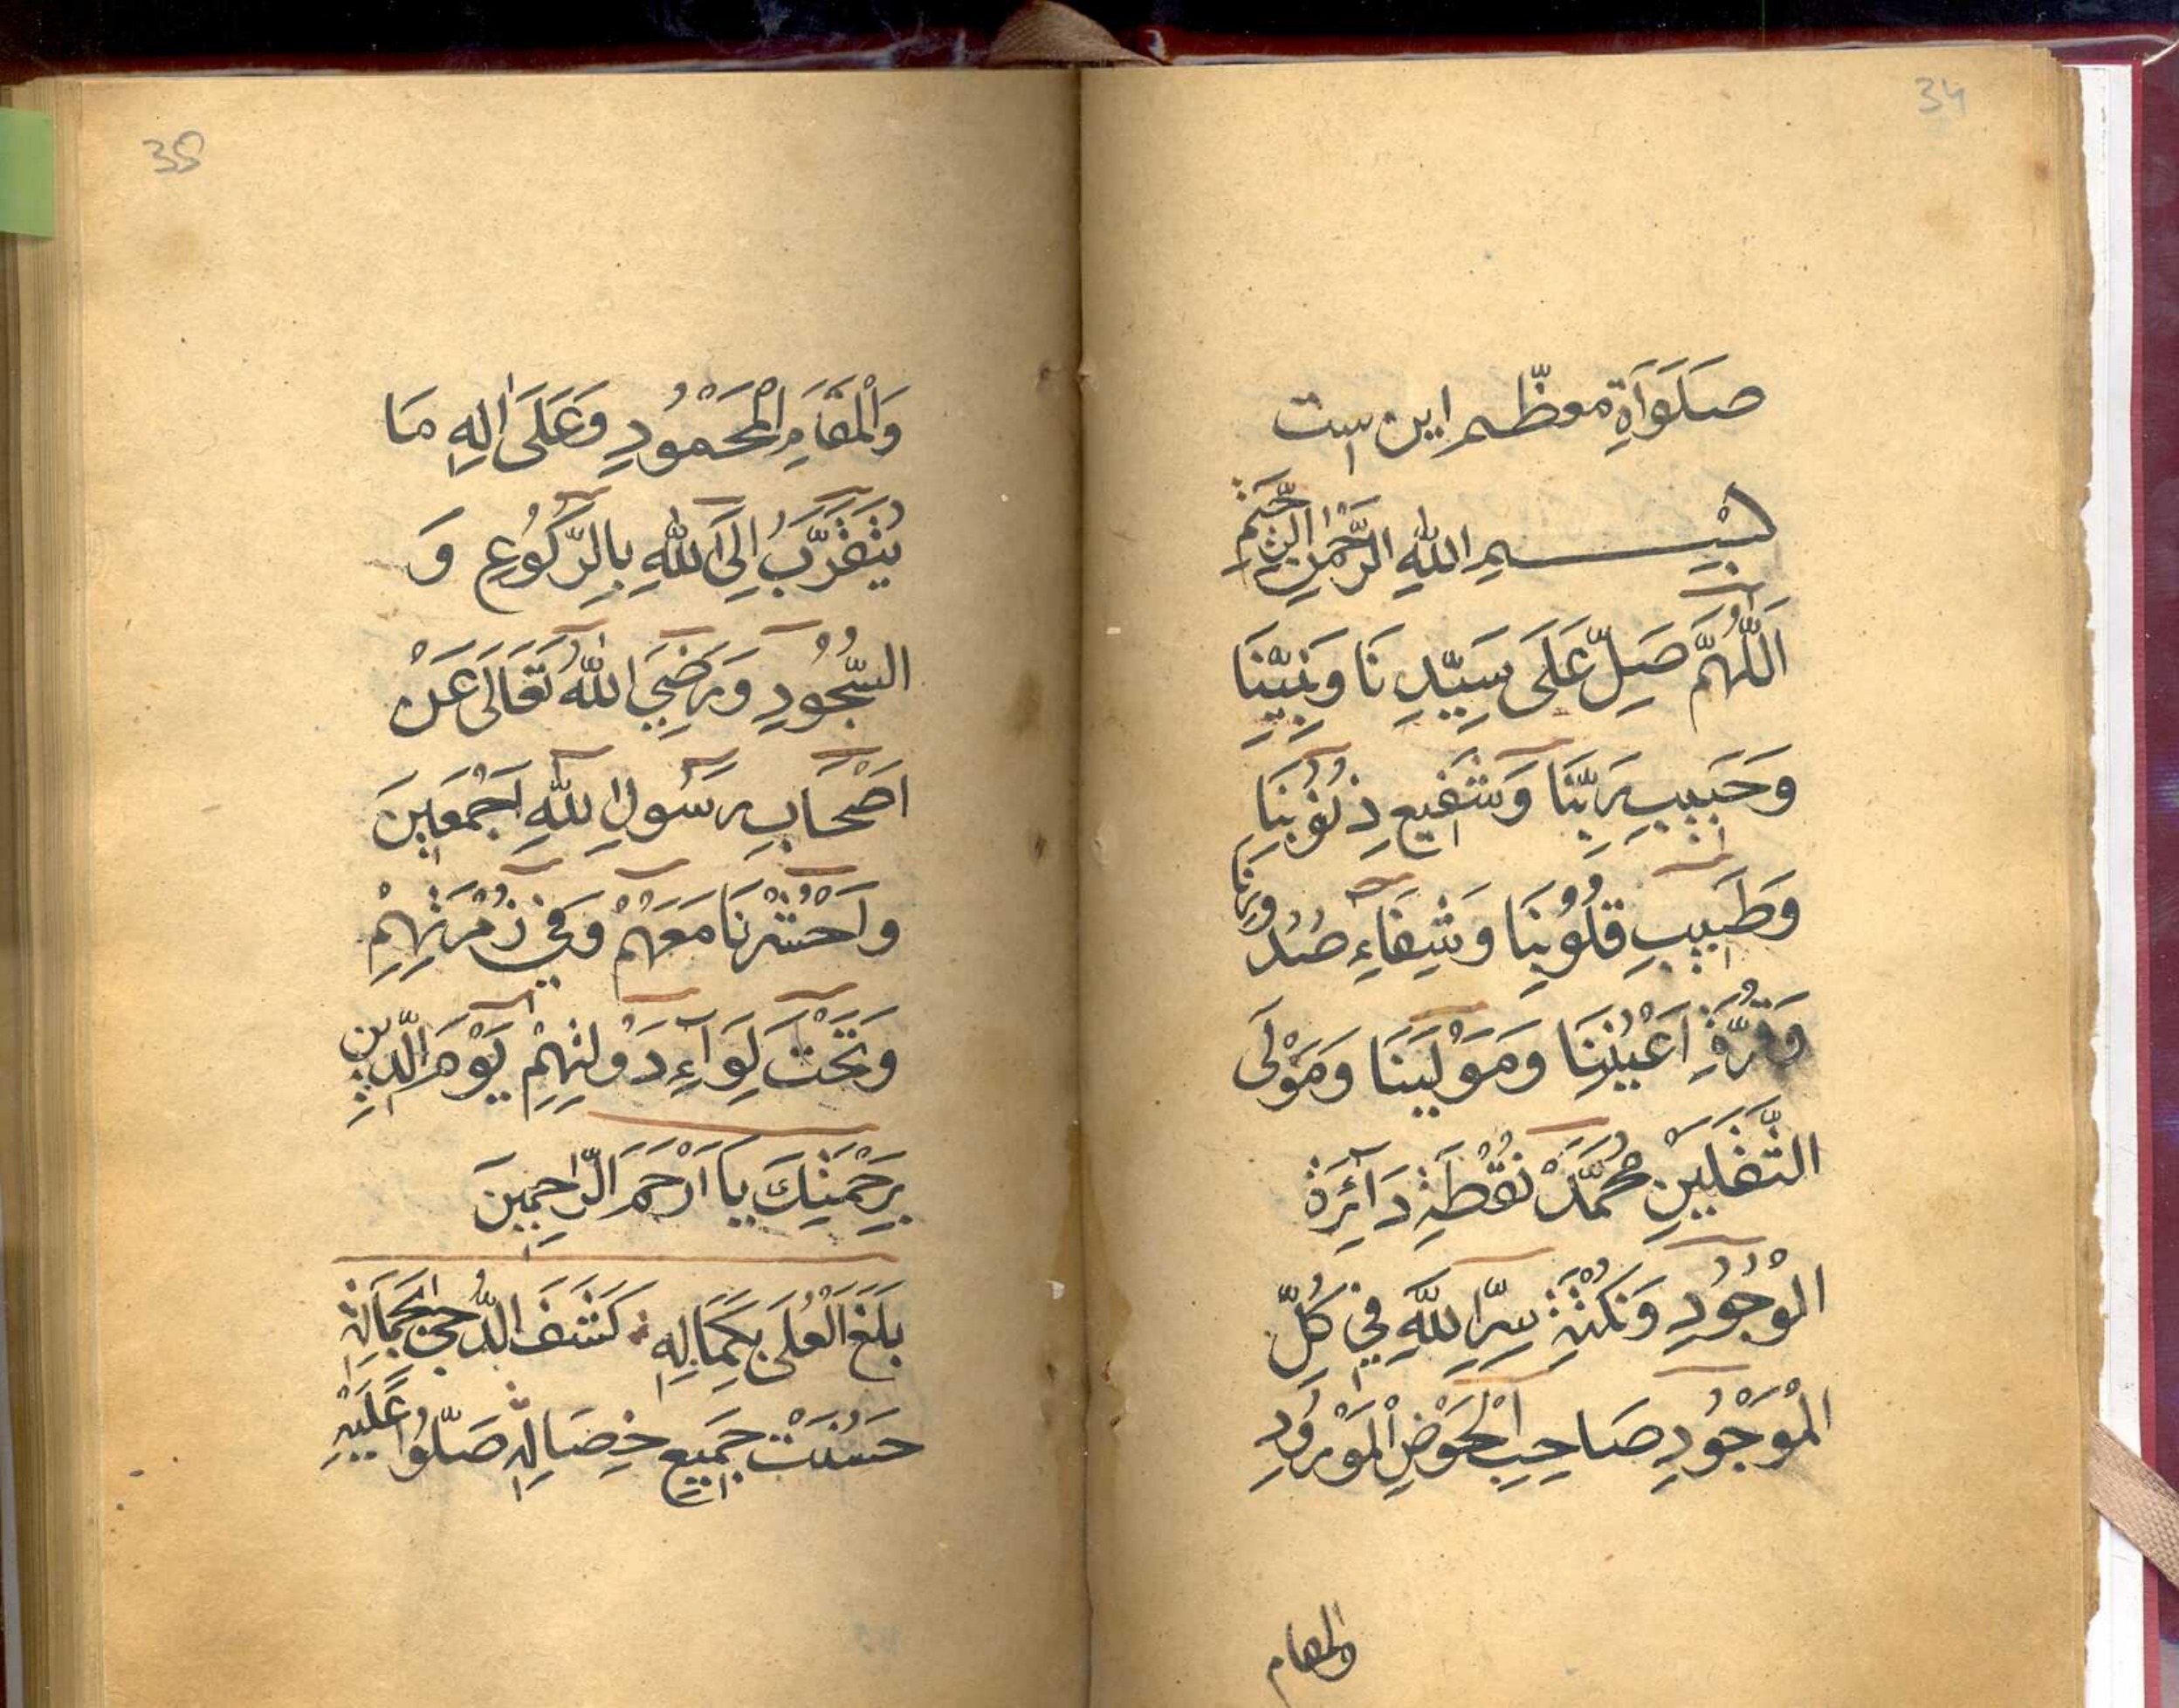 34
صَلَوَاةِ معظّم این است
بِسْمِ اللهِ الرَّحْمٰنِ الرَّحِيْمِ
اَللّٰهُمَّ صَلِّ عَلَى سَيِّدِنَا وَنَبِيِّنَا
وَحَبِيبِ رَبِّنَا وَشَفِيعِ ذُنُوْبِنَا
وَطَبِيبِ قُلُوْبِنَا وَشِفَاءِ صُدُورِنَا
وَقُرَّةِ اَعْيُنِنَا وَمَوْلَينَا وَمَوْلَى
الثَّقَلَيْنِ مُحَمَّدْ نُقْطَةِ دَآئِرَةِ
الْوُجُوْدِ وَنُكْتَةِ سِرِّ اللهِ فِي كُلِّ
الْمَوْجُوْدِ صَاحِبِ الْحَوْضِ الْمَوْرُوْدِ
والمقام
35
وَالْمَقَامِ الْمَحْمُوْدِ وَعَلَى اٰلِهِ مَا
يُتَقَرَّبُ اِلَى اللهِ بِالرُّكُوْعِ وَ
السُّجُوْدِ وَرَضِيَ اللهُ تَعَالَى عَنْ
اَصْحَابِ رَسُوْلِ اللهِ اَجْمَعِينَ
وَاحْشُرْنَا مَعَهُمْ وَفِي زُمْرَتِهِمْ
وَتَحْتَ لِوَآءِ دَوْلَتِهِمْ يَوْمَ الدِّينِ
بِرَحْمَتِكَ يَا اَرْحَمَ الرَّاحِمِينَ
بَلَغَ الْعُلَى بِكَمَالِهِ كَشَفَ الدُّجَى بِجَمَالِهِ
حَسُنَتْ جَمِيعُ خِصَالِهِ صَلُّوْا عَلَيْهِ